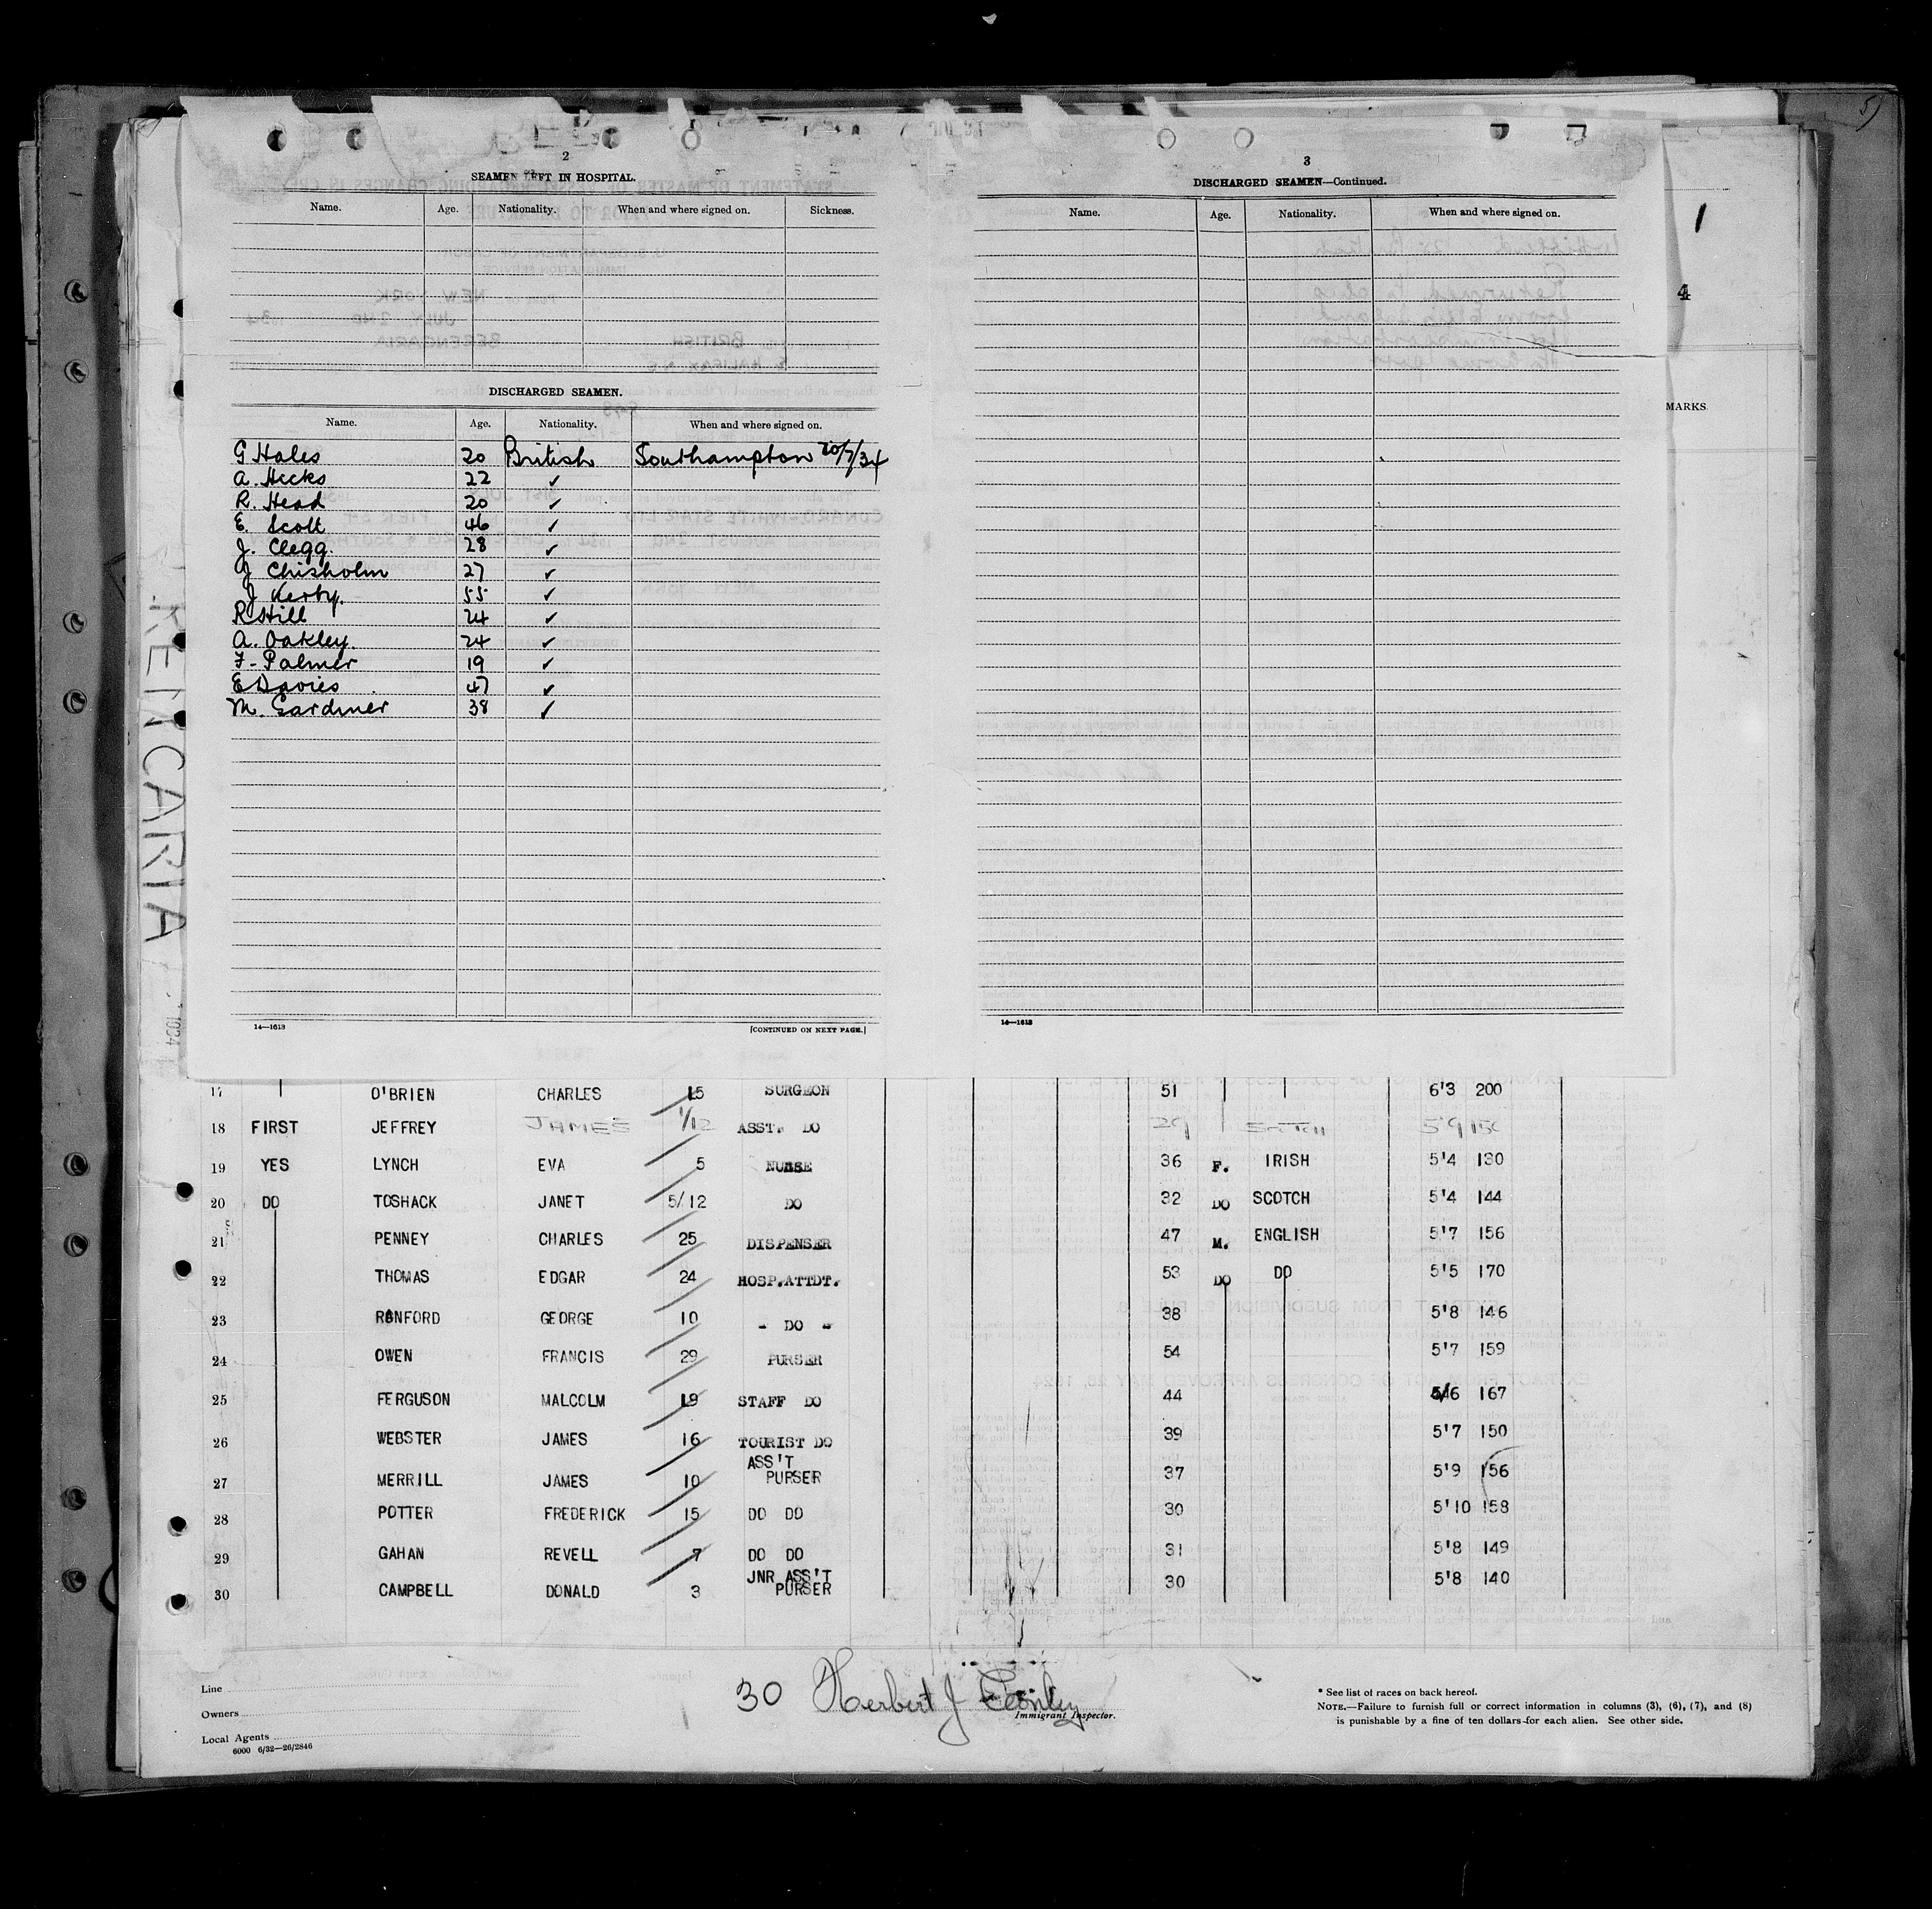 2
SEAMEN LEFT IN HOSPITAL.
Name. Age. Nationality. When and where signed on. Sickness.
DISCHARGED SEAMEN.
Name. Age. Nationality. When and where signed on.
G Hales 20 British Southampton 20/7/34
A. Hicks 22 ✓
R. Head 20 ✓
E. Scott 46 ✓
J. Clegg. 28 ✓
J Chisholm 27 ✓
J Kerby. 55 ✓
R Hill 24 ✓
A. Oakley. 24 ✓
F. Palmer 19 ✓
E Davies 47 ✓
M. Gardiner 38 ✓
14—1613 [CONTINUED ON NEXT PAGE.]
3
DISCHARGED SEAMEN—Continued.
Name. Age. Nationality. When and where signed on.
14—1613
1
4
MARKS
17 O'BRIEN CHARLES 15 SURGEON 51 6'3 200
18 FIRST JEFFREY JAMES 1/12 ASST. DO 29 5'9 150
19 YES LYNCH EVA 5 NURSE 36 F. IRISH 5'4 130
20 DO TOSHACK JANET 5/12 DO 32 DO SCOTCH 5'4 144
21 PENNEY CHARLES 25 DISPENSER 47 M. ENGLISH 5'7 156
22 THOMAS EDGAR 24 HOSP.ATTDT. 53 DO DO 5'5 170
23 RANFORD GEORGE 10 - DO - 38 5'8 146
24 OWEN FRANCIS 29 PURSER 54 5'7 159
25 FERGUSON MALCOLM 19 STAFF DO 44 5/6 167
26 WEBSTER JAMES 16 TOURIST DO 39 5'7 150
27 MERRILL JAMES 10 ASS'T PURSER 37 5'9 156
28 POTTER FREDERICK 15 DO DO 30 5'10 158
29 GAHAN REVELL 7 DO DO 31 5'8 149
30 CAMPBELL DONALD 3 JNR ASS'T PURSER 30 5'8 140
Line
Owners
Local Agents
6000 6/32—26/2846
30 Herbert J
Immigrant Inspector.
* See list of races on back hereof.
NOTE.—Failure to furnish full or correct information in columns (3), (6), (7), and (8)
is punishable by a fine of ten dollars for each alien. See other side.